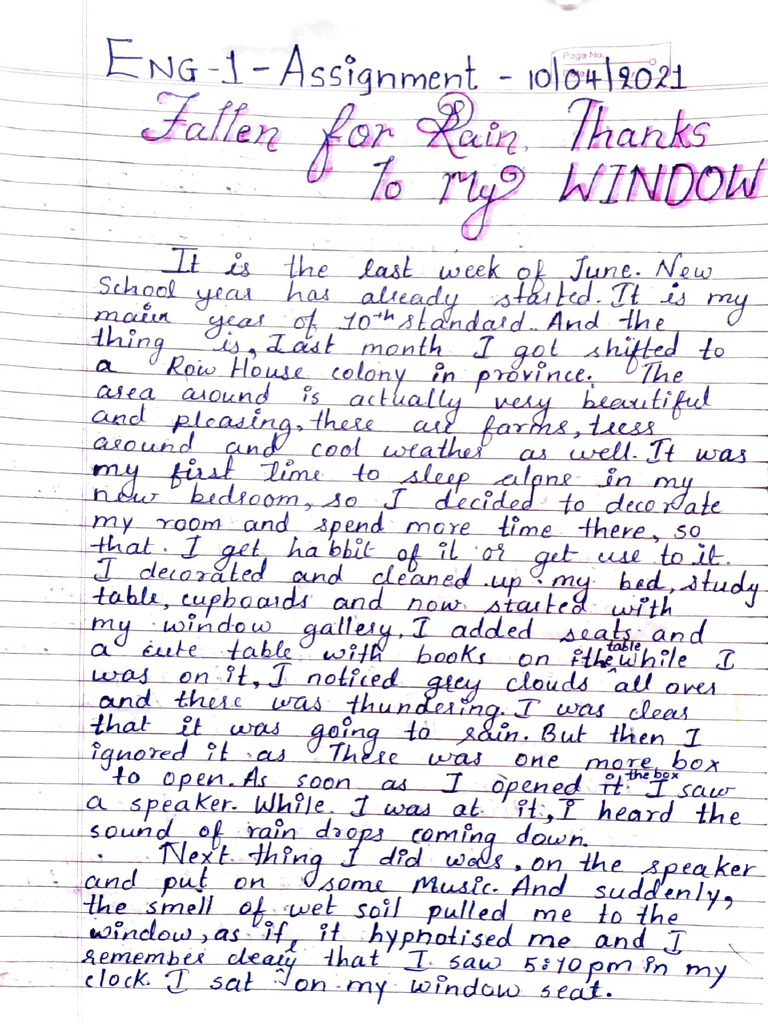 Page No.
ENG-1-Assignment - 10/04/2021
Fallen for Rain, Thanks
To My WINDOW
It is the last week of June. New
School year has already started. It is my
main year of 10th standard. And the
thing is, Last month I got shifted to
a Row House colony in province. The
area around is actually very beautiful
and pleasing, there are farms, trees
around and cool weather as well. It was
my first time to sleep alone in my
new bedroom, so I decided to decorate
my room and spend more time there, so
that I get habbit of it or get use to it.
I decorated and cleaned up my bed, study
table, cupboards and now started with
my window gallery, I added seats and
a cute table with books on the table while I
was on it, I noticed grey clouds all over
and there was thundering. I was clear
that it was going to rain. But then I
ignored it as There was one more box
to open. As soon as I opened the box I saw
a speaker. While I was at it, I heard the
sound of rain drops coming down.
Next thing I did was, on the speaker
and put on some Music. And suddenly,
the smell of wet soil pulled me to the
window, as if it hypnotised me and I
remember clearly that I saw 5:10 pm in my
clock. I sat on my window seat.